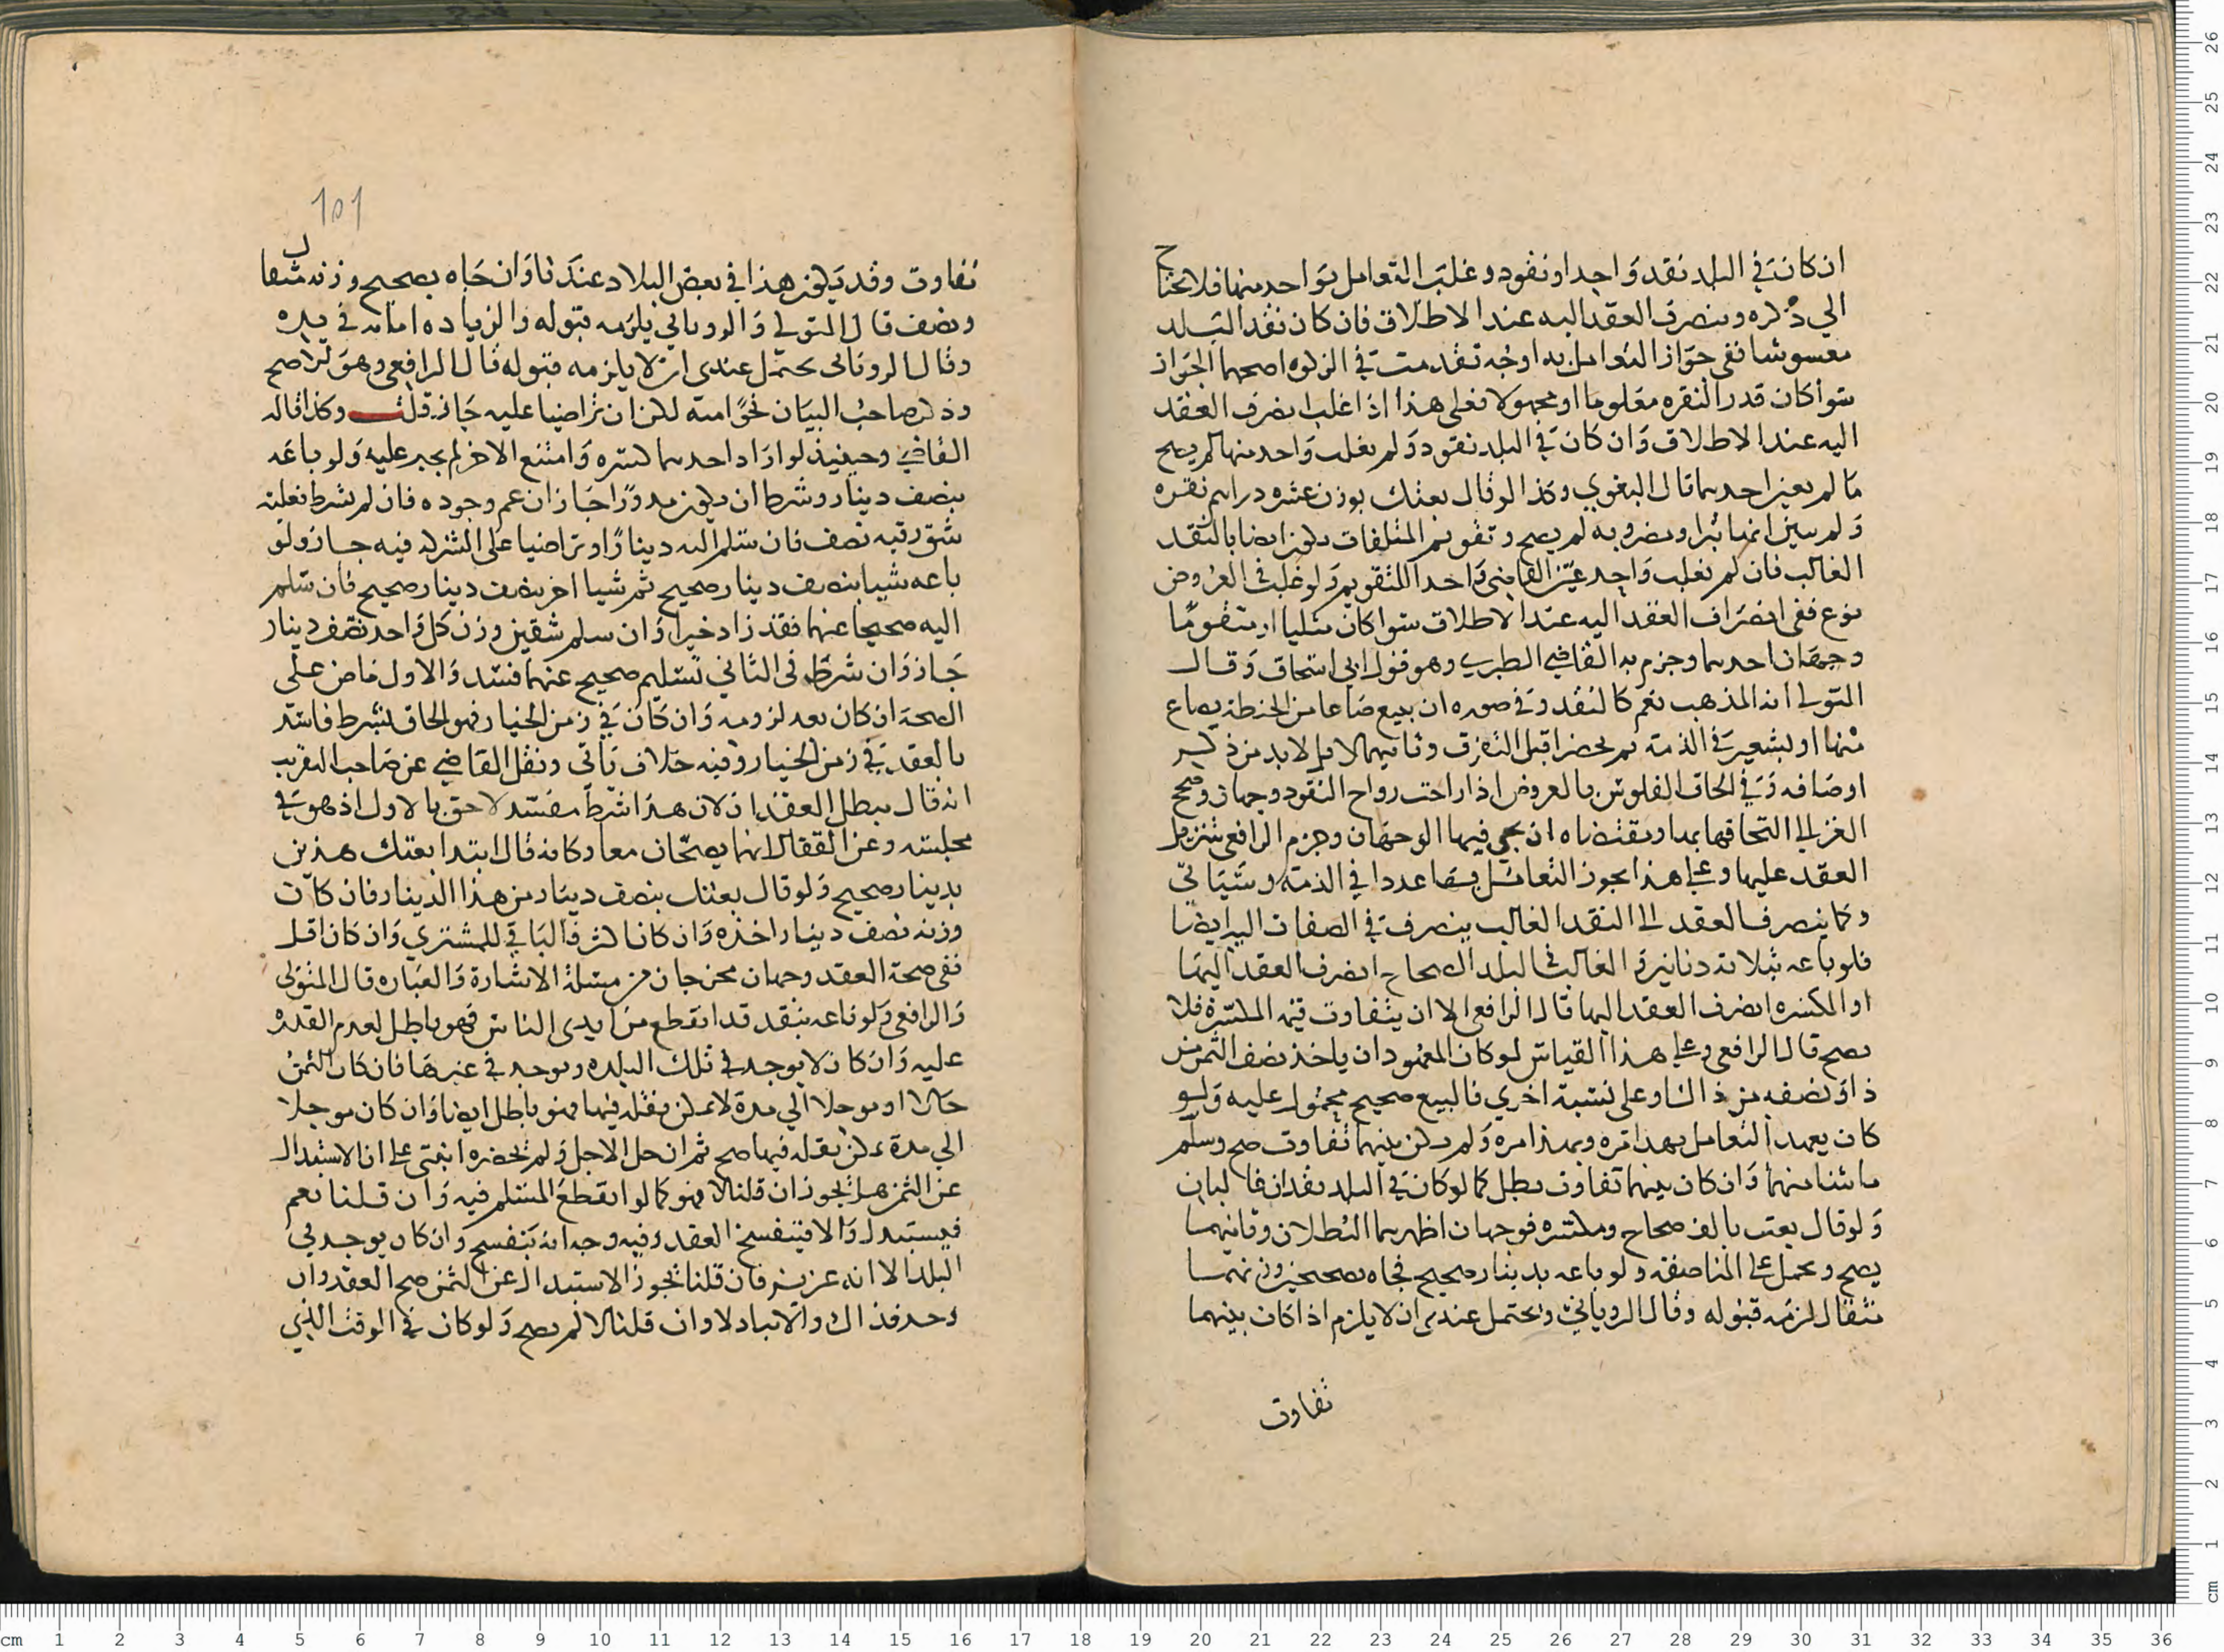 ان كان في البلد نقد واحد او نقود وغلب التعامل بواحد منها فلا يحتاج
الي ذكره وينصرف العقد اليه عند الاطلاق فان كان نقد البلد
مغسوشا ففي جواز التعامل به اوجه تقدمت في الزكوه اصحها الجواز
سوا كان قدر النقره معلوما او مجهولا فعلى هذا اذا غلب انصرف العقد
اليه عند الاطلاق وان كان في البلد نقود ولم يغلب واحد منها لم يصح
ما لم يعين احدهما قال البغوي وكذا لو قال بعتك بوزن عشره دراهم نقره
ولم يبين انها تبرا ومضروبه لم يصح وتقويم المتلفات يكون ايضا بالنقد
الغالب فان لم يغلب واحد عين القاضي واحدا للتقويم ولو غلب في العروض
نوع ففي انصراف العقد اليه عند الاطلاق سوا كان مثليا او متقوما
وجهان احدهما وجزم به القاضي الطبري وهو قول ابي اسحاق وقال
المتولي انه المذهب نعم كالنقد وفي صوره ان يبيع صاعا من الحنطة بصاع
منها او بشعير في الذمة ثم يحضرا قبل التفرق وثانيهما لا بل لا بد من ذكر
اوصافه وفي الحاق الفلوس بالعروض اذا راجت رواج النقود وجهان وصحح
الغزالي التحاقها بها ومقتضاه ان يجي فيها الوجهان وجزم الرافعي بتنزيل
العقد عليها وعلى هذا يجوز التعامل بها عددا في الذمة وسياتي
وكما ينصرف العقد الى النقد الغالب ينصرف في الصفات اليه ايضا
فلو باعه بثلاثة دنانير والغالب في البلد الصحاح انصرف العقد اليها
او المكسره انصرف العقد اليها قال الرافعي الا ان يتفاوت قيم المكسرة فلا
يصح قال الرافعي وعلى هذا القياس لو كان المعهود ان ياخذ نصف الثمن من
ذا ونصفه من ذاك او على نسبة اخري فالبيع صحيح محمول عليه ولو
كان يعهد التعامل بهذا مره وبهذا مره ولم يكن بينهما تفاوت صح وسلم
ما شا منهما وان كان بينهما تفاوت بطل كما لو كان في البلد نقدان غالبان
ولو قال بعت بالف صحاح ومكسره فوجهان اظهرهما البطلان وثانيهما
يصح ويحمل على المناصفه ولو باعه بدينار صحيح فجاه بصحيحين وزنهما
مثقال لزمه قبوله وقال الروياني ويحتمل عندى ان لا يلزم اذا كان بينهما
تفاوت
101
تفاوت وقد يكون هذا في بعض البلاد عندنا وان جاه بصحيح وزنه مثقال
ونصف قال المتولي والروياني يلزمه قبوله والزياده امانه في يده
وقال الروياني يحتمل عندى ان لا يلزمه قبوله قال الرافعي وهو الاصح
وذكر صاحب البيان نحوا منه لكن ان تراضيا عليه جاز قلت وكذا قاله
القاضي وحينيذ لو اراد احدهما كسره وامتنع الاخر لم يجبر عليه ولو باعه
بنصف دينار وشرط ان يكون مدورا جاز ان عم وجوده فان لم يشرط فعليه
شق وزنه نصف فان سلم اليه دينارا وتراضيا على الشركه فيه جاز ولو
باعه شيا بنصف دينار صحيح ثم شيا اخر بنصف دينار صحيح فان سلم
اليه صحيحا عنهما فقد زاد خيرا وان سلم شقين وزن كل واحد نصف دينار
جاز وان شرط في الثاني تسليم صحيح عنهما فسد والاول ماض على
الصحة ان كان بعد لزومه وان كان في زمن الخيار فهو الحاق لشرط فاسد
بالعقد في زمن الخيار وفيه خلاف ياتى ونقل القاضي عن صاحب التقريب
انه قال يبطل العقدان لان هذا شرط مفسد لاحق بالاول اذ هو في
مجلسه وعن القفال انهما يصحان معا وكانه قال ابتدا بعتك هذين
بدينار صحيح ولو قال بعتك بنصف دينار من هذا الدينار فان كان
وزنه نصف دينار اخذه وان كان اكثر فالباقي للمشتري وان كان اقل
ففي صحة العقد وجهان مخرجان من مسئلة الاشارة والعباره قال المتولى
والرافعي ولو باعه بنقد قد انقطع من ايدى الناس فهو باطل لعدم القدره
عليه وان كان لا يوجد في تلك البلده ويوجد في غيرها فان كان الثمن
حالا او موجلا الي مدة لا يمكن نقله فيها فهو باطل ايضا وان كان موجلا
الي مدة يمكن نقله فيها صح ثم ان حل الاجل ولم يحضره انبنى على ان الاستبدال
عن الثمن هل يجوز ان قلنا لا فهو كما لو انقطع المسلم فيه وان قلنا نعم
فيستبدل والا فينفسخ العقد وفيه وجه انه ينفسخ وان كان يوجد في
البلد الا انه عزيز فان قلنا يجوز الاستبدال عن الثمن صح العقد وان
وجد فذاك والا تبادلا وان قلنا لا لم يصح ولو كان في الوقت الذي